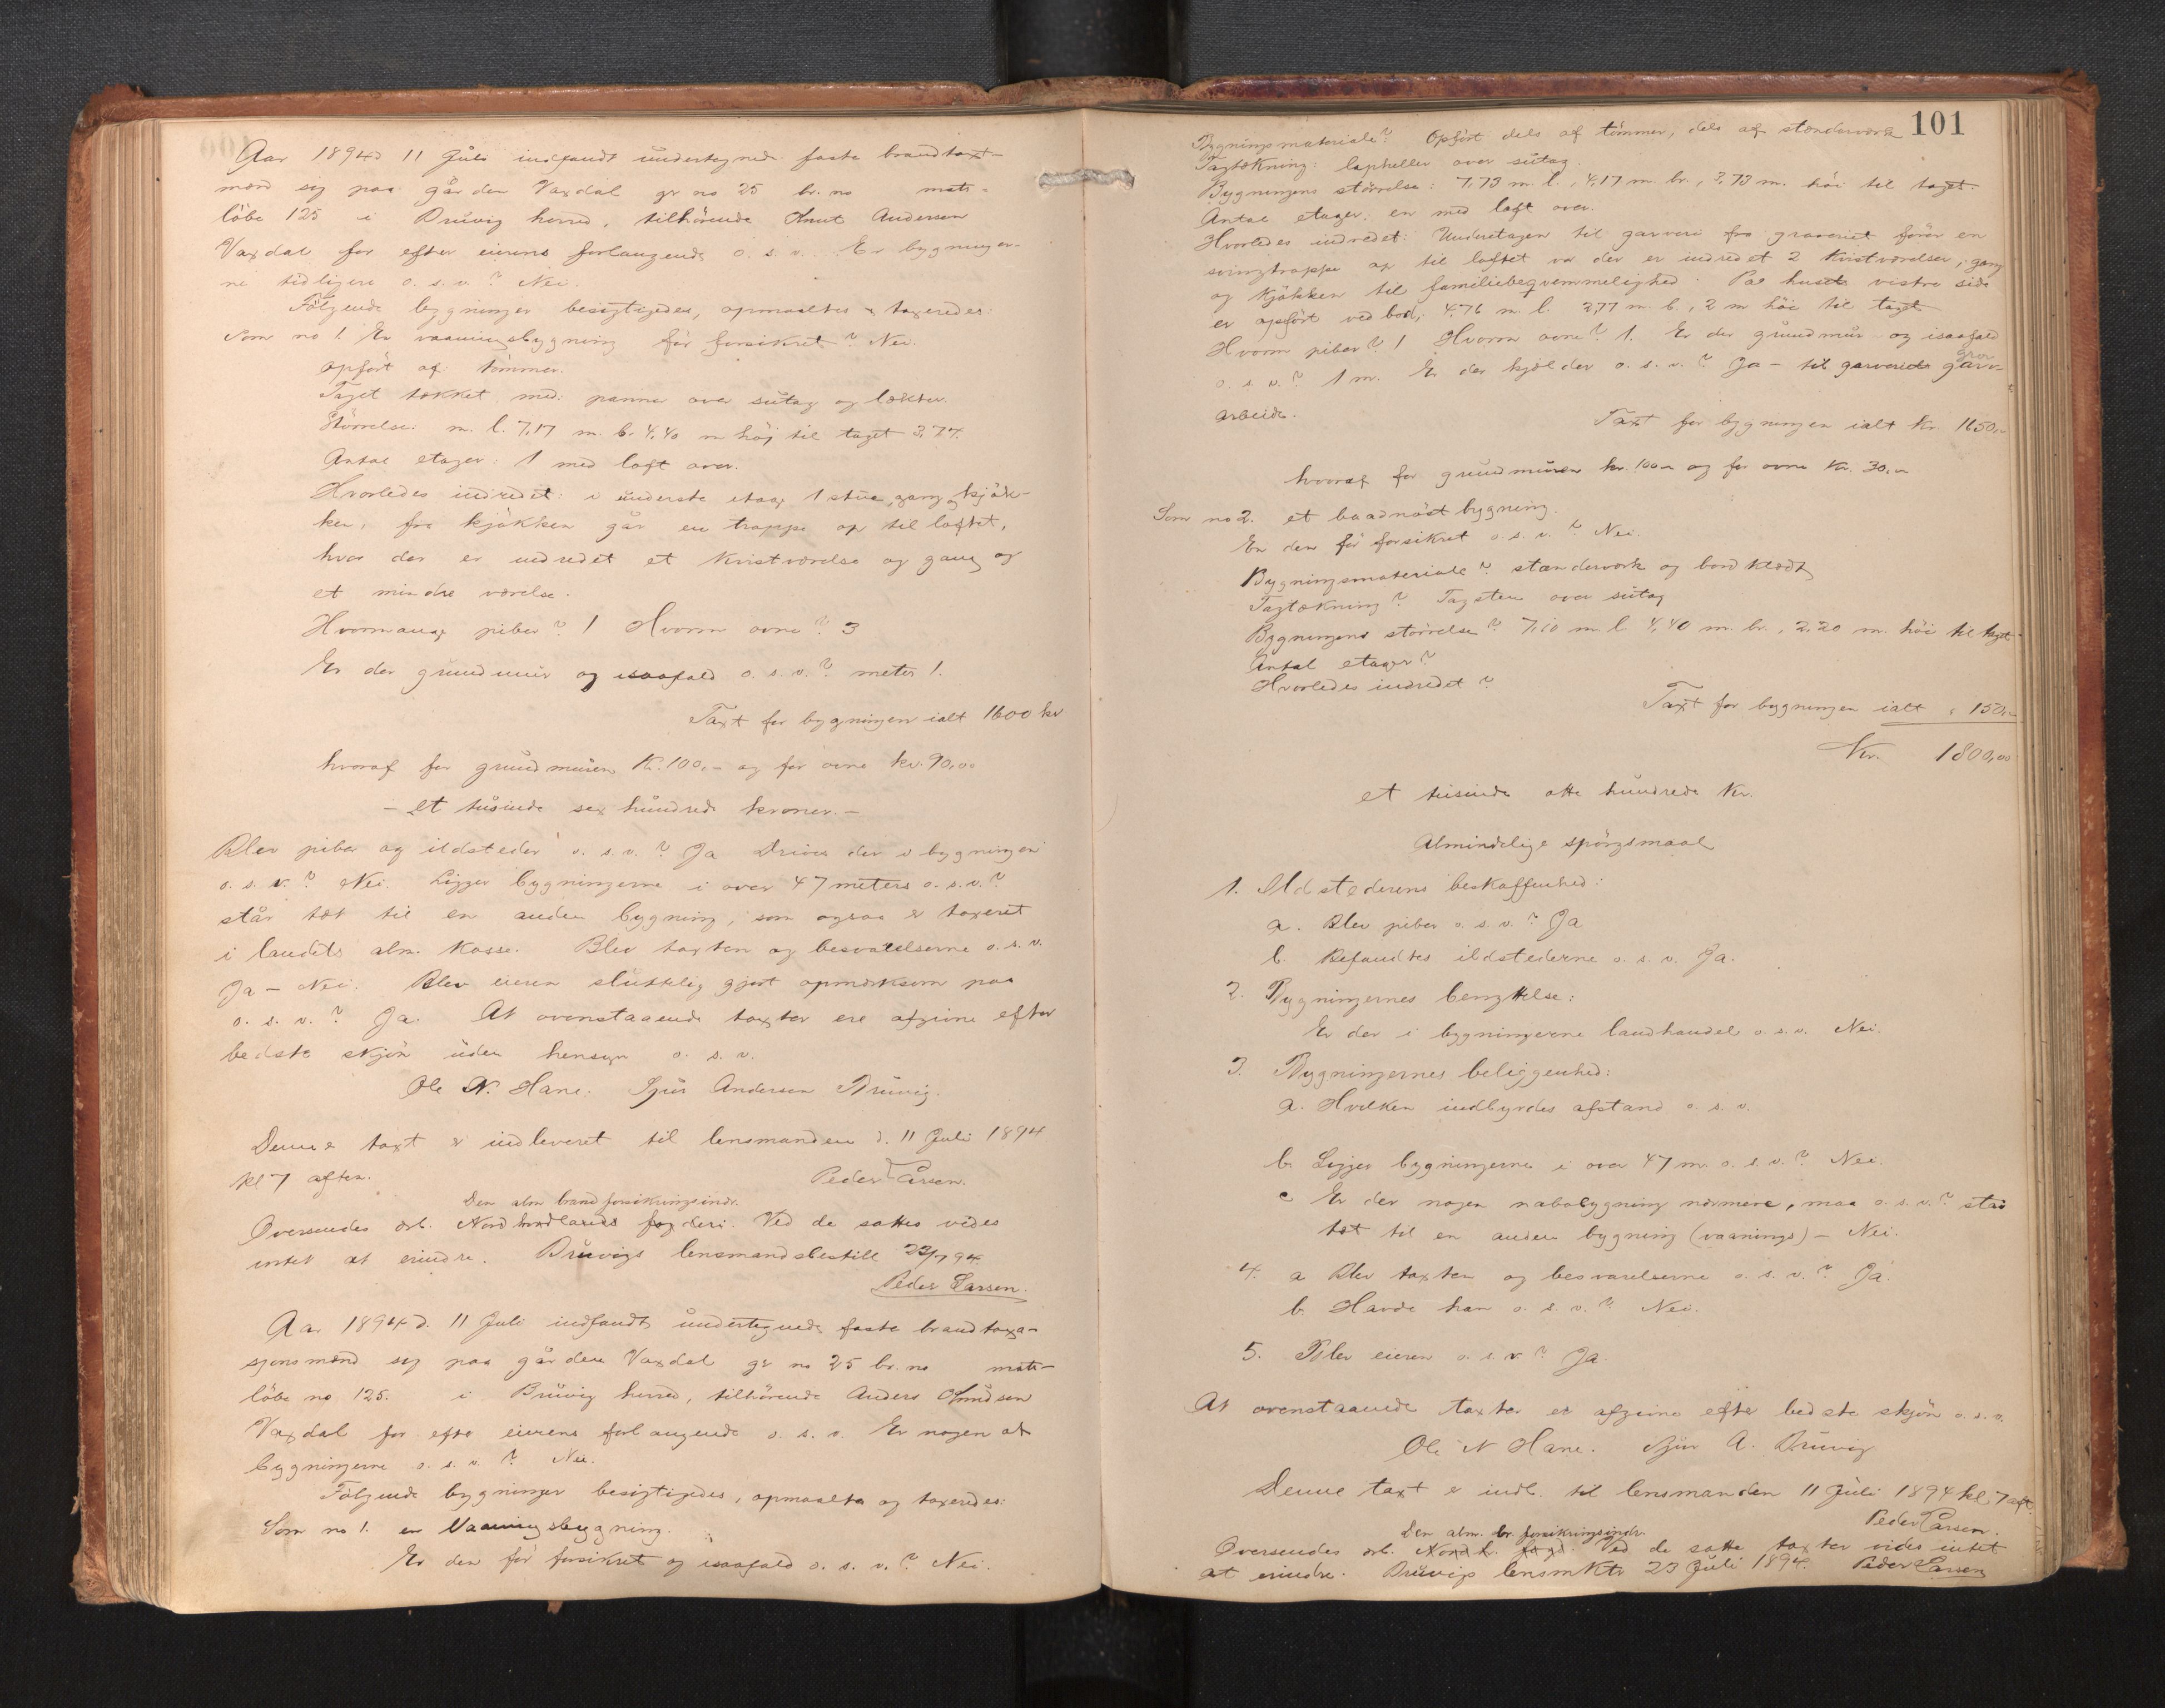 Aar 1894 d 11 Juli indfandt undertegnede faste brandtaxt-
mænd sig paa gården Vaxdal gr no 25 br. no matr-
löbe 125 i Bruvig herred, tilhörende Knut Andersen
Vaxdal for efter eierens forlangende o. s. v. Er bygninger-
ne tidligere o. s. v.? Nei.
Fölgende bygninger besigtigedes, opmaaltes & taxeredes:
Som no 1. En vaaningsbygning för forsikret? Nei.
opfört af: tömmer.
Taget tækket med: panner over sutag og lækter.
Störrelse: m. l. 7,17 m. b. 4,40 m höj til taget 3,77.
Antal etager: 1 med loft over.
Hvorledes indredet: i underste etag 1 stue, gang og kjök-
ken, fra kjökken går en trappe op til loftet,
hvor der er indredet et Kvistværelse og gang og
et mindre værelse.
Hvormange piber? 1 Hvorm ovne? 3
Er der grundmur og isaafald o. s. v.? meter 1.
Taxt for bygningen ialt 1600 kr
hvoraf for grundmuren Kr. 100,- og for ovne kr. 90,00
- et tusinde sex hundrede kroner. -
Blev piber og ildsteder o. s. v.? Ja Drives der i bygningen
o. s. v.? Nei. Ligger bygningerne i over 47 meters o. s. v.?
står tæt til en anden bygning, som ogsaa er taxeret
i landets alm. Kasse. Blev taxten og besvarelserne o. s. v.
Ja - Nei. Blev eieren sluttelig gjort opmærksom paa
o. s. v.? Ja. At ovenstaaende taxter ere afgivne efter
bedste skjön uden hensyn o. s. v.
Ole N. Hane. Sjur Andersen Bruvig.
Denne taxt er indleveret til lensmanden d. 11 Juli 1894
kl 7 aften. Peder Larsen.
Den alm brandforsikringsindr.
Oversendes ærb. Nordhordlands fogderi. Ved de satte vides
intet at erindre. Bruvigs lensmandsbestill 23/7 94.
Peder Larsen.
Aar 1894 d. 11 Juli indfandt undertegnede faste brandtaxa-
sjonsmænd sig paa gården Vaxdal gr no 25 br. no matr-
löbe no 125. i Bruvig herred, tilhörende Anders Knudsen
Vaxdal for efter eierens forlangende o. s. v. Er nogen af
bygningerne o. s. v.? Nei.
Fölgende bygninger besigtigedes, opmaaltes og taxeredes:
Som no 1. en Vaaningsbygning.
Er den för forsikret og isaafald o. s. v.? Nei.
101
Bygningsmateriale? Opfört dels af tömmer, dels af stænderværk
Tagtækning: lapheller over sutag.
Bygningens störrelse: 7,73 m. l., 4,17 m. br., 3,73 m. höi til taget.
Antal etager: en med loft over.
Hvorledes indredet: Underetagen til garveri fra garveriet förer en
svingtrappe op til loftet hvor der er indredet 2 Kvistværelser, gang
og Kjökken til familiebeqvemmelighed. Paa husets vistre side
er opfört vedbod, 4,76 m. l. 2,77 m. b., 2 m höi til taget
Hvorm piber? 1 Hvorm ovne? 1. Er der grundmur og isaafald
o. s. v.? 1 m. Er der kjælder o. s. v.? Ja - til garveriets grov
arbeide.
Taxt for bygningen ialt Kr 1650,-
hvoraf for grundmuren kr. 100,- og for ovne Kr. 30,-
Som no 2. et baadnöst bygning.
Er den för forsikret o. s. v.? Nei.
Bygningsmateriale? stænderværk og bordklædt
Tagtækning? Tagsten over sutag
Bygningens störrelse? 7,10 m. l. 4,40 m. br., 2,20 m. höi til taget
Antal etager?
Hvorledes indredet?
Taxt for bygningen ialt " 150,-
Kr. 1800,00
et tusinde otte hundrede Kr.
Almindelige spörgsmaal
1. Ildstedernes beskaffenhed:
a. Blev piber o. s. v.? Ja
b. Befandtes ildstederne o. s. v. Ja.
2. Bygningernes benyttelse:
Er der i bygningerne landhandel o. s. v. Nei.
3. Bygningernes beliggenhed:
a. Hvilken indbyrdes afstand o. s. v.
b. Ligger bygningerne i over 47 m. o. s. v.? Nei.
c Er der nogen nabobygning nærmere, maa o. s. v.? står
tæt til en anden bygning (vaanings) - Nei.
4. a Blev taxten og besvarelserne o. s. v.? Ja.
b. Havde han o. s. v.? Nei.
5. Blev eieren o. s. v? Ja.
At ovenstaaende taxter er afgivne efter bedste skjön o. s. v.
Ole N Hane. Sjur A. Bruvig
Denne taxt er indl. til lensmanden 11 Juli 1894 kl 7 aft.
Peder Larsen.
Den alm. br. forsikringsindr.
Oversendes ærb. Nordh. fogd. Ved de satte taxter vides intet
at erindre. Bruvigs lensmKtr 23 Juli 1894. Peder Larsen